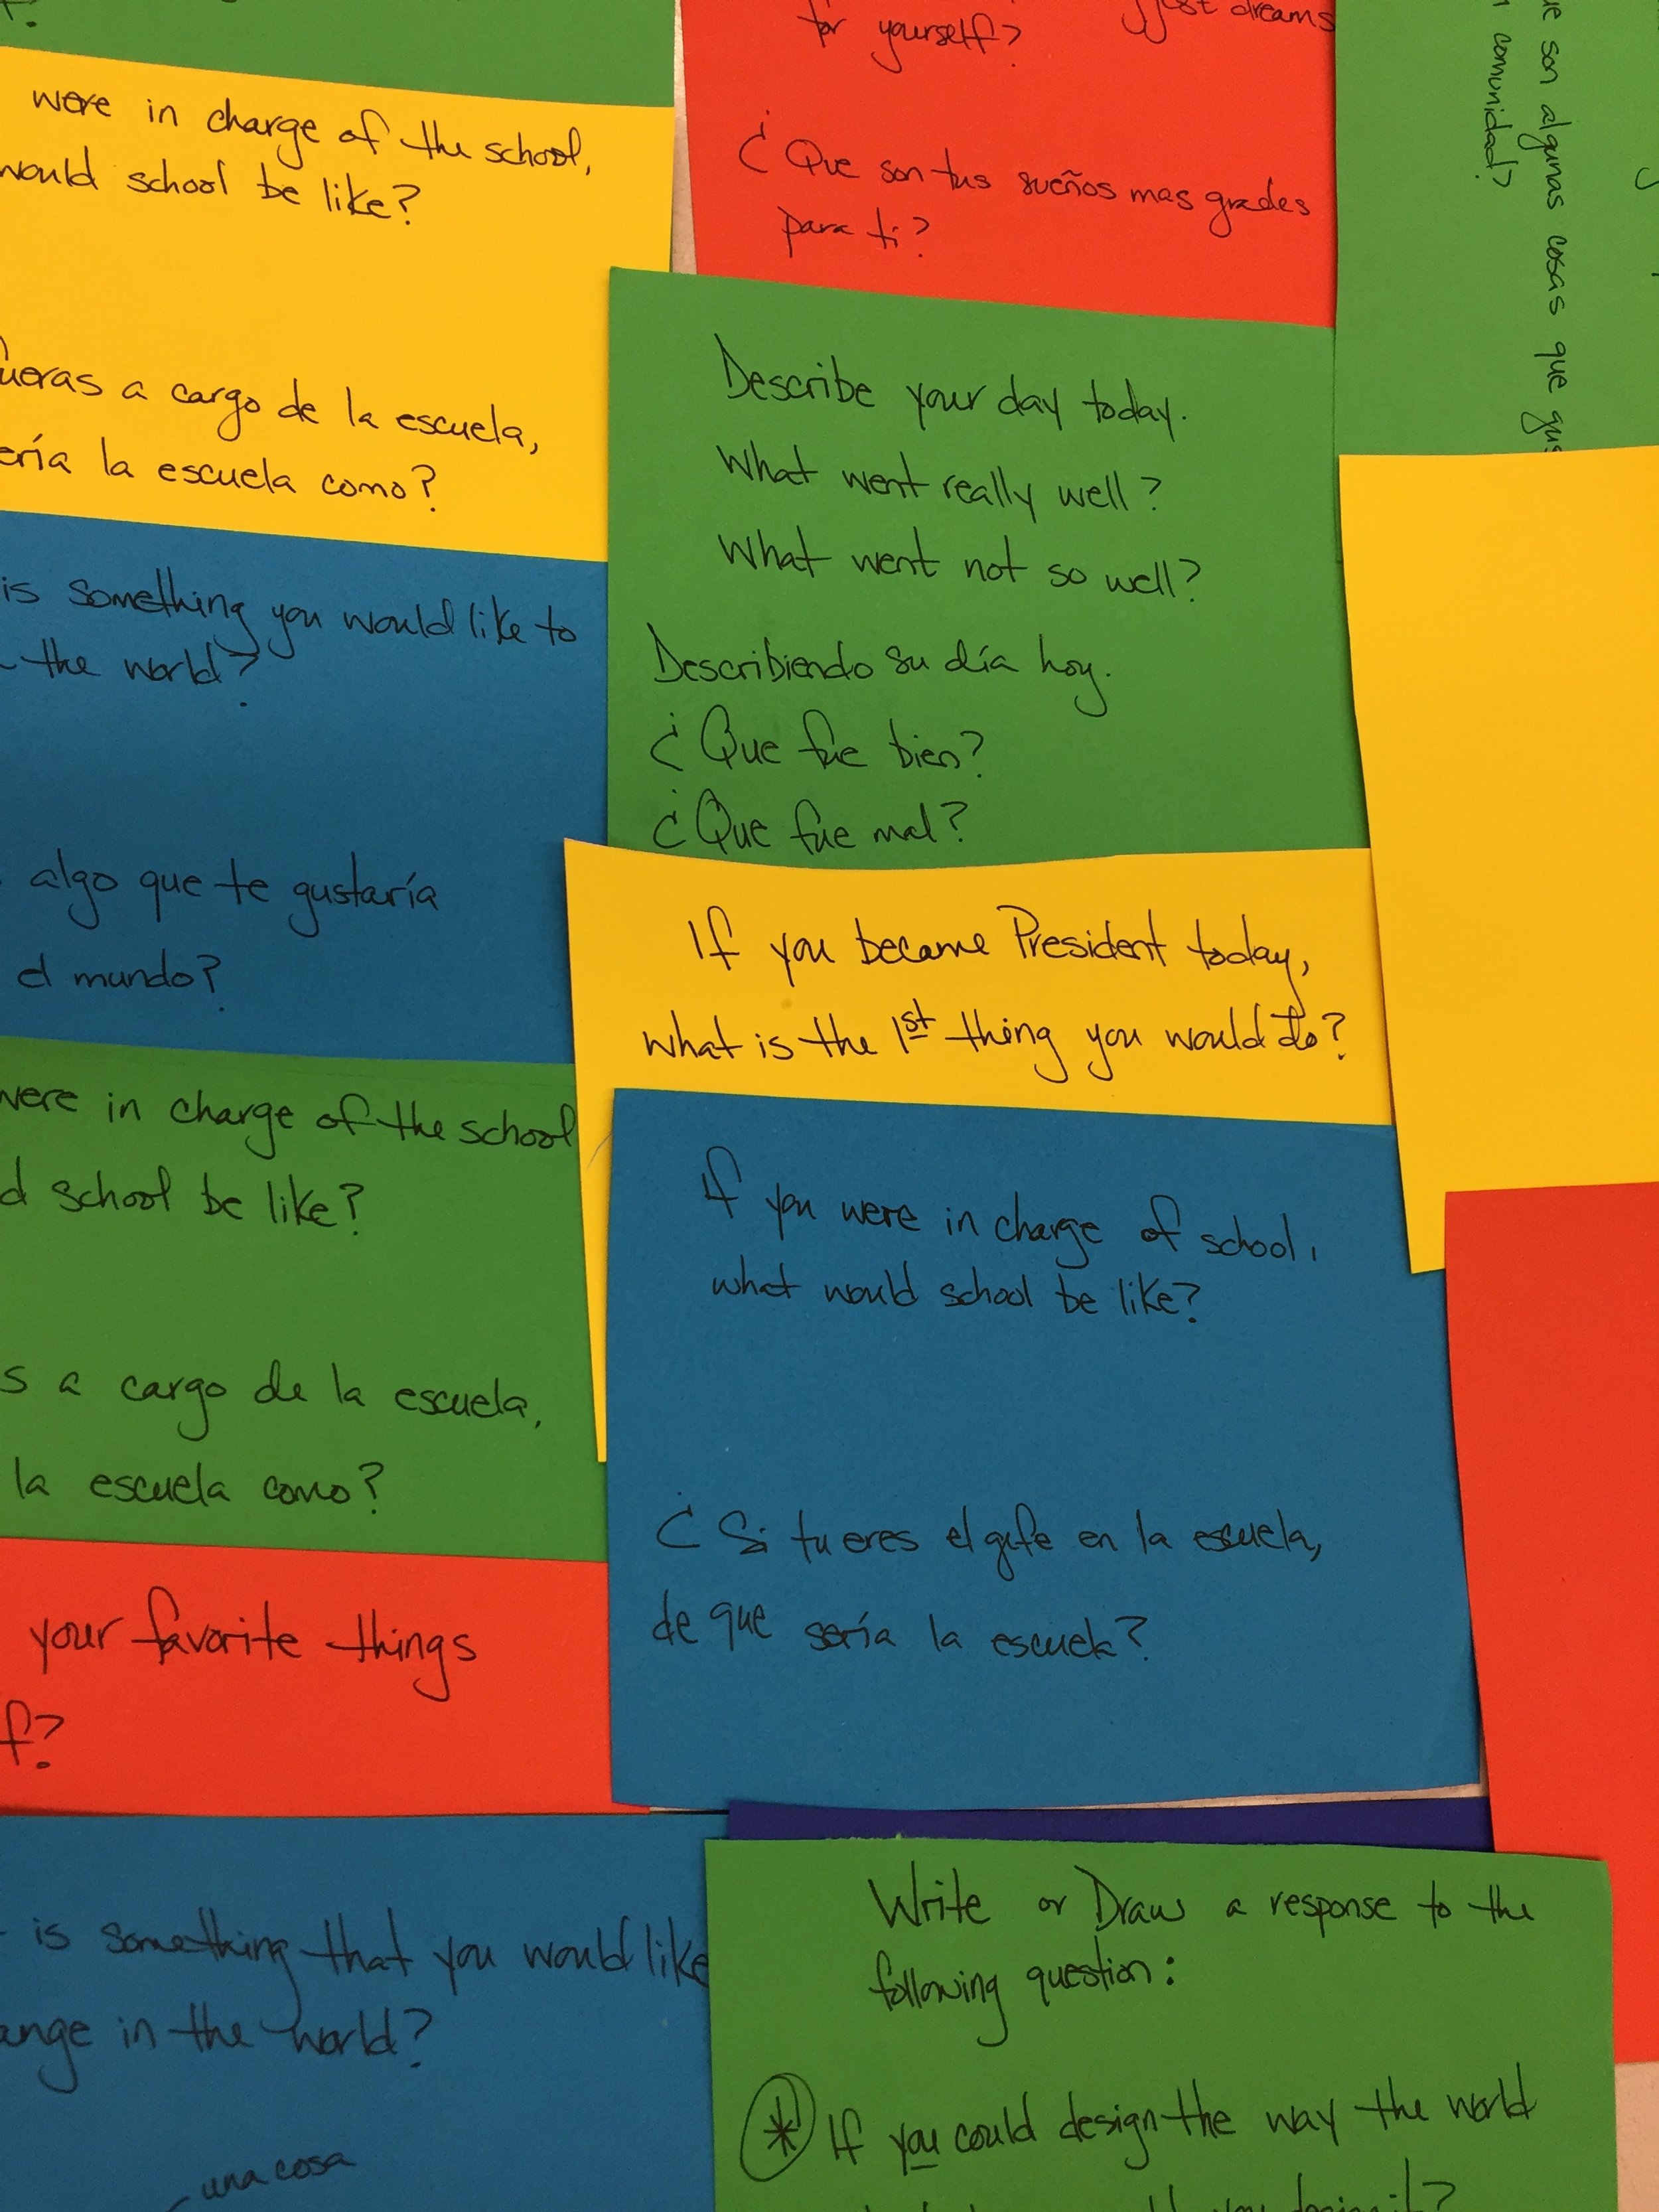 were in charge of the school,
would school be like?
ueras a cargo de la escuela,
ería la escuela como?
for yourself?
dreams
¿Que son tus sueños mas grades
para ti?
ue son algunas cosas que gus
comunidad?
is something you would like to
the world?
algo que te gustaría
el mundo?
Describe your day today.
What went really well?
What went not so well?
Describiendo su día hoy.
¿Que fue bien?
¿Que fue mal?
If you became President today,
what is the 1st thing you would do?
were in charge of the school
d school be like?
s a cargo de la escuela,
la escuela como?
If you were in charge of school,
what would school be like?
¿Si tu eres el gefe en la escuela,
de que sería la escuela?
your favorite things
f?
is something that you would like
ange in the world?
una cosa
Write or Draw a response to the
following question:
* If you could design the way the world